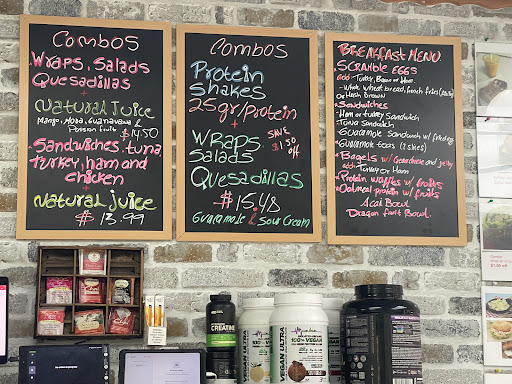 Combos
Wraps, Salads
Quesadillas
+
Natural Juice
Mango, Mora, Guanavana &
Passion fruits
$14.50
Sandwiches, tuna,
turkey, ham and
chicken
+
Natural juice
$ 13.99
Combos
Protein
Shakes
25gr/Protein
+
Wraps
Salads
SAVE
$1.50
off
Quesadillas
$15.48
Guacamole & Sour Cream
Breakfast Menu
Scramble eggs
add - Turkey, Bacon or Ham.
- Whole wheat bread, french fries
or Hash brown
Sandwiches
Ham or turkey Sandwich
Tuna Sandwich
Guacamole Sandwich w/
Guacamole toast
Bagels w/ and jelly
add: Turkey or Ham
Protein waffles w/ fruits
Oatmeal protein w/ fruits
Acai Bowl
Dragon fruit Bowl.
CREATINE
VEGAN ULTRA
100% VEGAN
VEGAN ULTRA
100% VEGAN